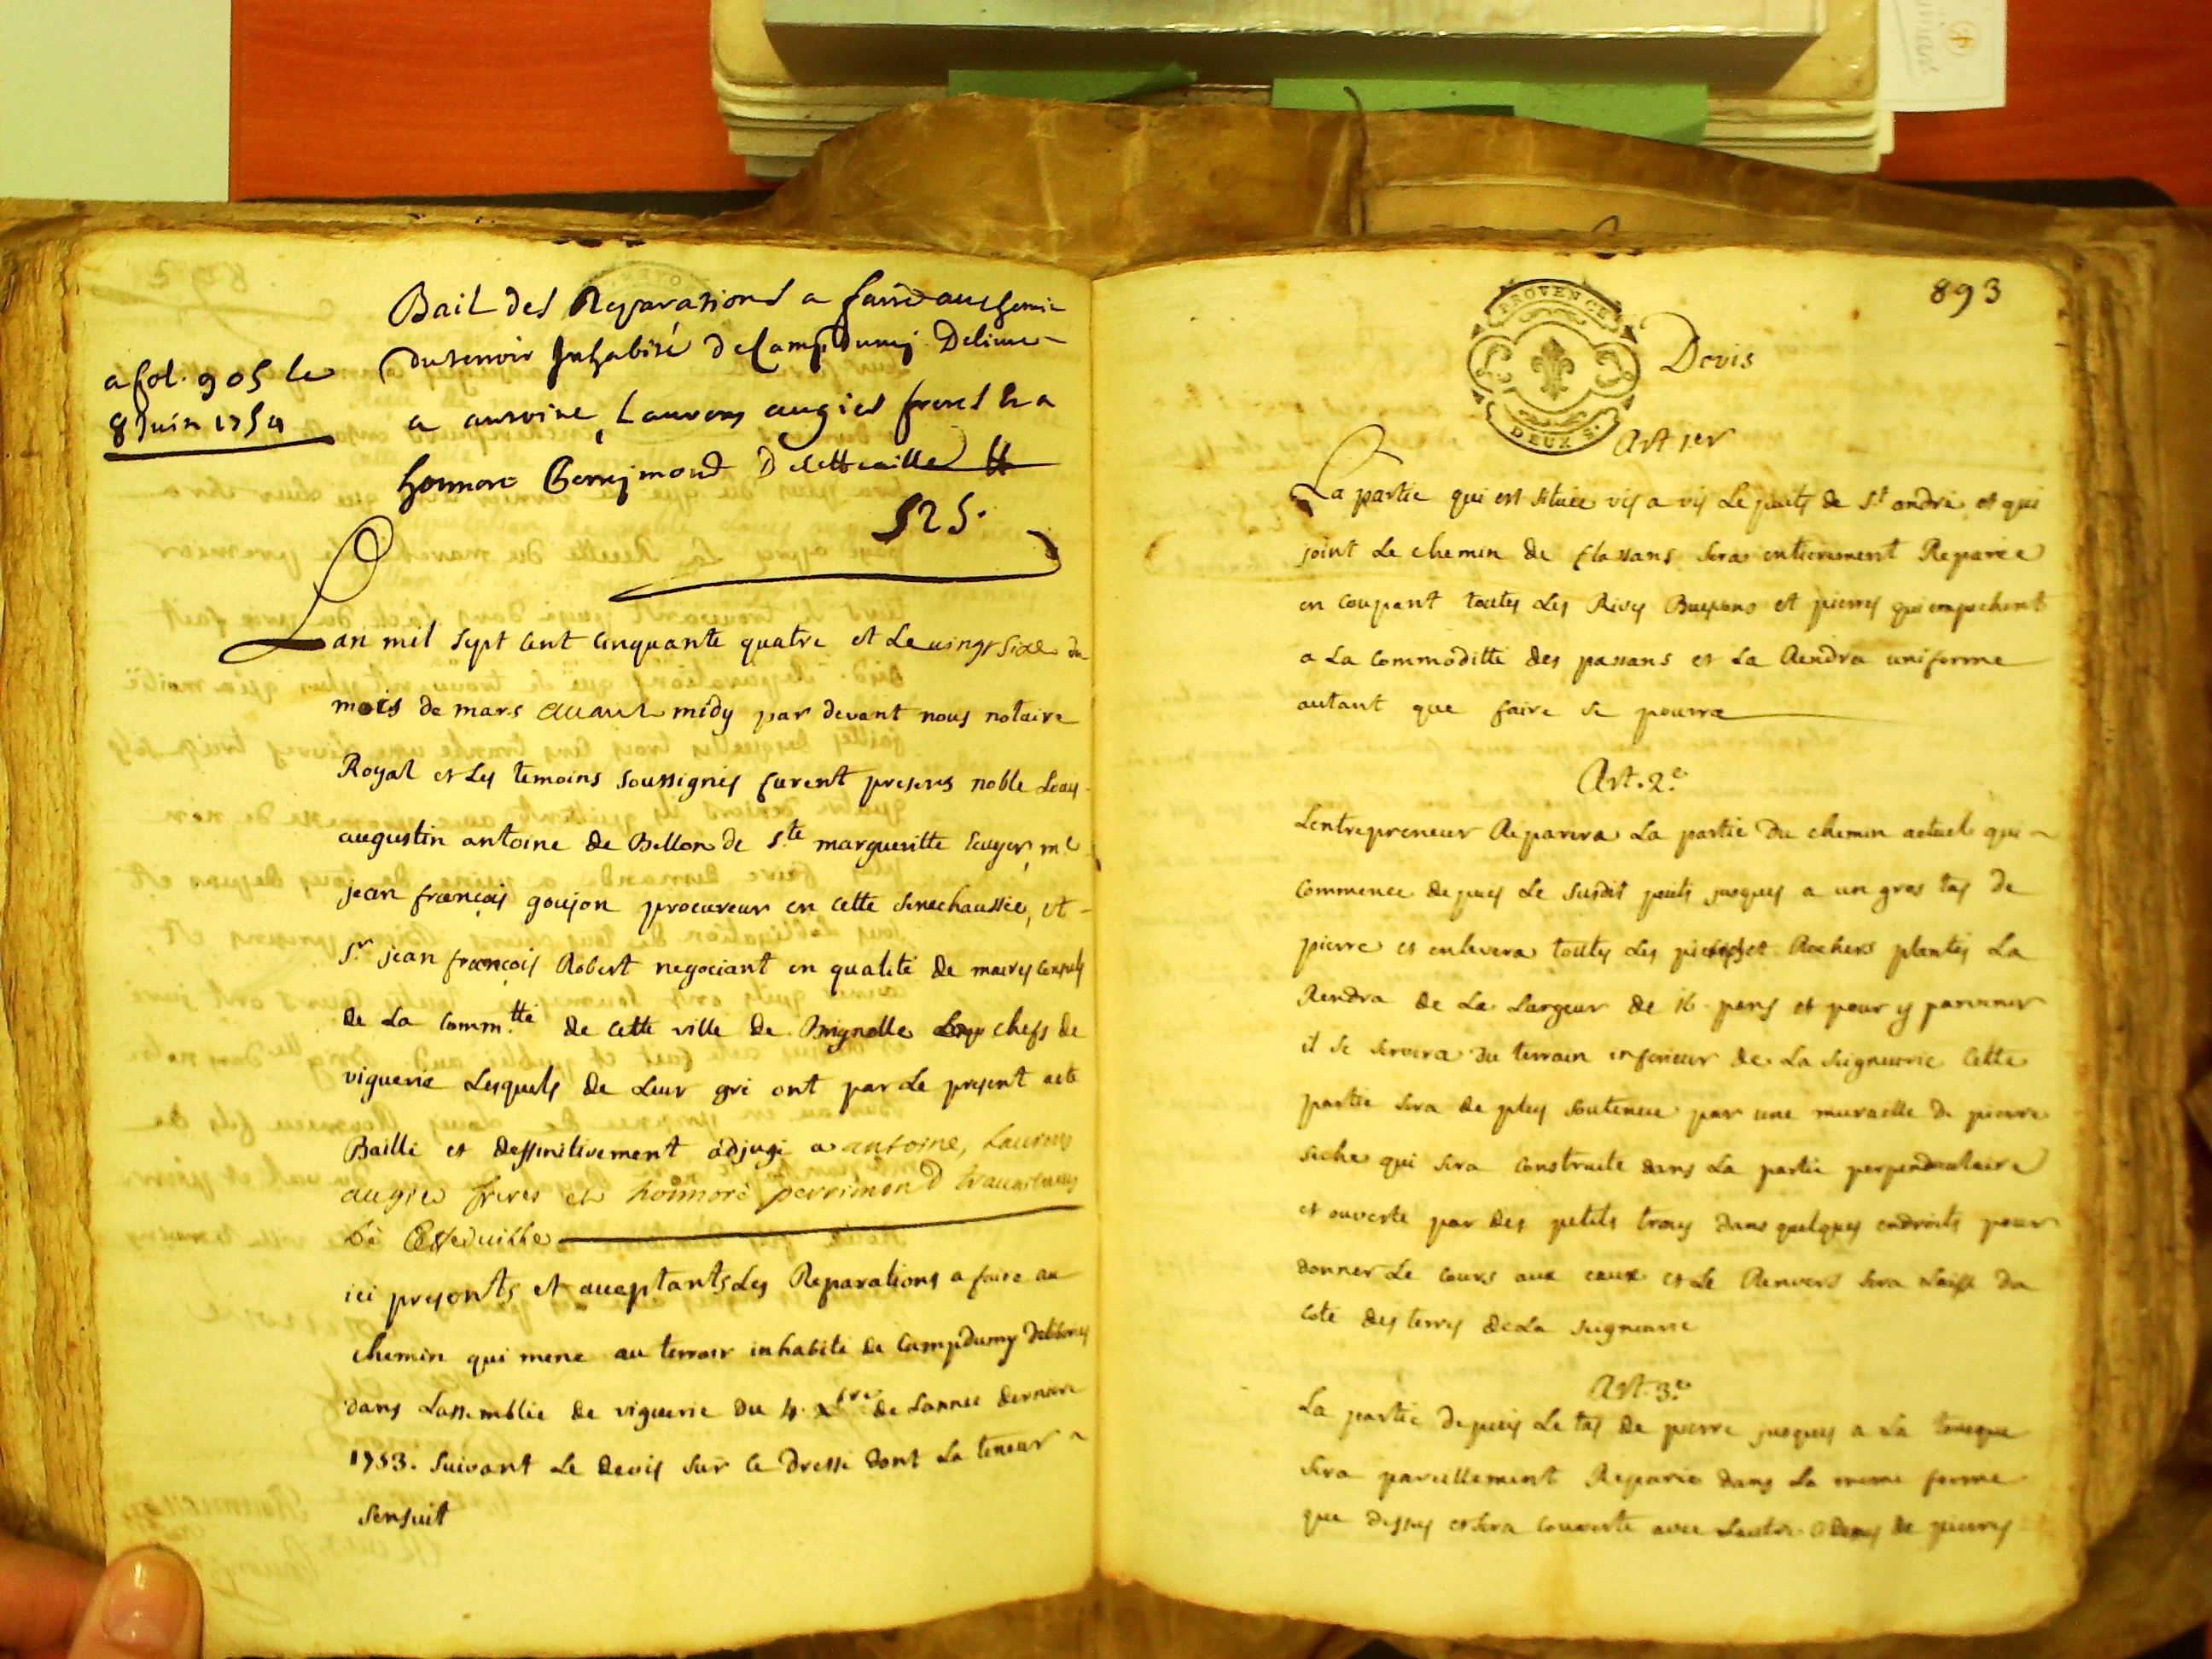 Bail des Reparations a faire au chemin
du terroir Inhabité de Campdumy Delivre
a antoine, Laurens augier freres & a
honnoré Perrymond
525.
a fol. 905 le
8 Juin 1754
Lan mil sept cent cinquante quatre et le vingt sixe du
mois de mars avant midy par devant nous notaire
Royal et les temoins soussignés furent presens noble Louis
augustin antoine de Bellon de Ste margueritte Ecuyer, me
jean françois goujon procureur en cette senechaussée, et
sr jean françois Robert negociant en qualité de maires consuls
de La Comm.tté de cette ville de Brignolle chefs de
viguerie Lesquels de Leur gré ont par Le present acte
Baillé et deffinitivement adjugé a antoine, Laurens
augier freres et honnoré perrimond travailleurs
ici presents et acceptants Les Reparations a faire au
chemin qui mene au terroir inhabité de Campdumy deliberées
dans Lassemblée de viguerie du 4 xbre de Lannée derniere
1753. suivant Le devis sur ce dressé dont La teneur
sensuit
893
PROVENCE
DEUX S.
Devis
Art 1er
La partie qui est située vis a vis Le puits de St andré et qui
joint Le chemin de flassans sera entierement Reparée
en coupant toutes Les Rives Buissons et pierres qui empechent
a La Commoditté des passans et La Rendra uniforme
autant que faire se pourra
Art. 2.e
Lentrepreneur Réparera La partie du chemin actuel qui
commence depuis Le susdit puits jusques a un gros tas de
pierre et enlevera toutes Les pierres et Rochers plantés La
Rendra de La Largeur de 16 pans et pour y parvenir
il se servira du terrain inferieur de La seigneurie Cette
partie sera de plus soutenue par une muraille de pierre
seche qui sera construite dans La partie perpendiculaire
et ouverte par des petits trous dans quelques endroits pour
donner Le cours aux eaux et Le Renvers sera Laissé du
coté des terres de La seigneurie
Art. 3.e
La partie depuis Le tas de pierre jusques a La
sera pareillement Reparée dans La meme forme
que dessus et sera couverte avec de pierres